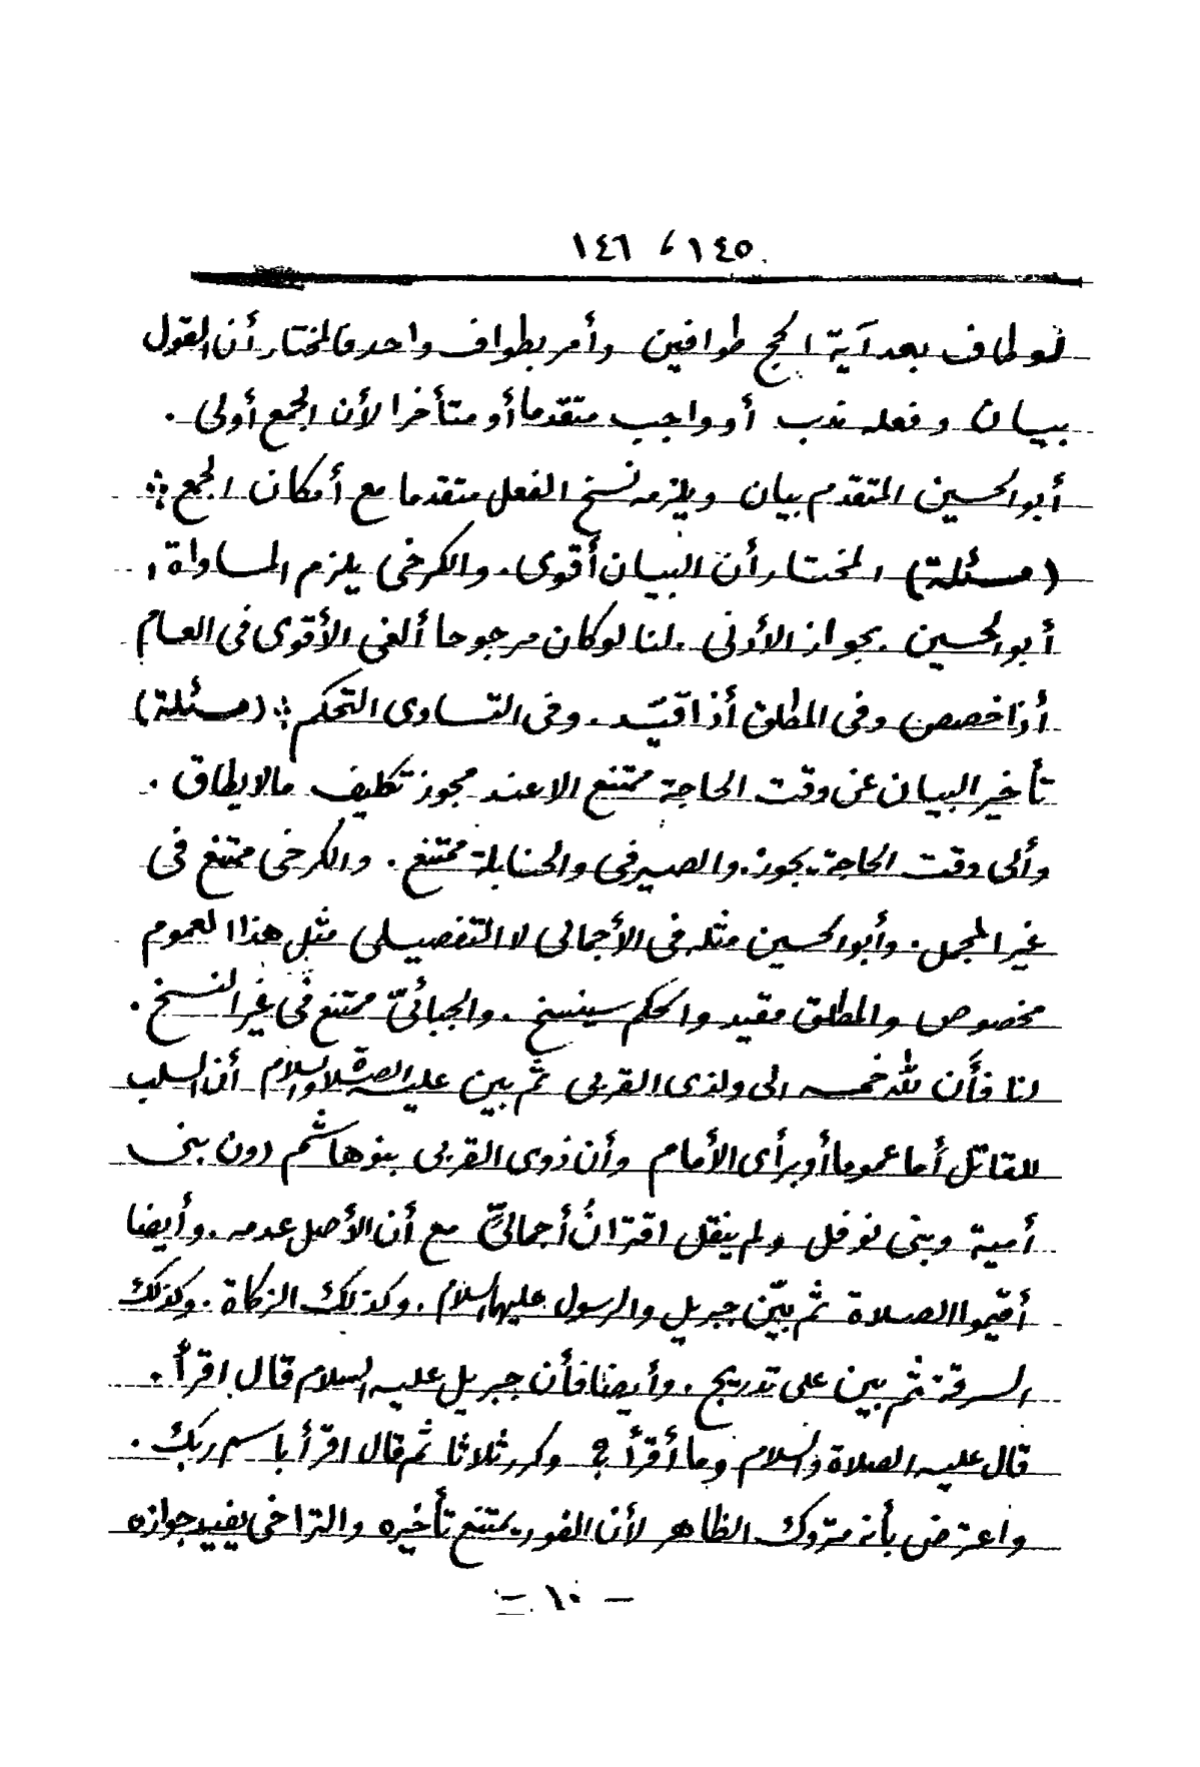 ١٤٥ ، ١٤٦
لو طاف بعد آية الحج طوافين وأمر بطواف واحد فالمختار أن القول
بيان وفعله ندب أو واجب متقدما أو متأخرا لأن الجمع أولى .
أبو الحسين المتقدم بيان ويلزمه نسخ الفعل متقدما مع أمكان الجمع ❖
(مسئلة) المختار أن البيان أقوى . والكرخى يلزم المساواة ،
أبو الحسين . بجواز الأدنى . لنا لو كان مرجوحا ألغى الأقوى فى العام
أذا خصص وفى المطلق أذا قيّد . وفى التساوى التحكم ❖ (مسئلة)
تأخير البيان عن وقت الحاجة ممتنع الا عند مجوز تكليف مالا يطاق .
وألى وقت الحاجة يجوز . والصيرفى والحنابلة ممتنع . والكرخى ممتنع فى
غير المجمل . وأبو الحسين مثله فى الأجمالى لا التفصيلى مثل هذا العموم
مخصوص والمطلق مقيد والحكم سينسخ . والجبائىّ ممتنع فى غير النسخ .
لنا فأَن للّٰه خمسه الى ولذى القربى ثمّ بين عليه الصلاة والسلام أن السلب
للقاتل أما عموما أو برأى الأمام وأن ذوى القربى بنو هاشم دون بنى
أمية وبنى نوفل ولم ينقل اقترانُ أجمالىٍّ مع أن الأصل عدمه . وأيضا
أقيموا الصلاة ثمّ بيّن جبريل والرسول عليهما السلام . وكذلك الزكاة . وكذلك
السرقة ثم بين على تدريج . وأيضا فأن جبريل عليه السلام قال اقرأْ .
قال عليه الصلاة والسلام وما أقرأ ؟ وكرر ثلاثا ثمّ قال اقرأ باسم ربك .
واعترض بأنه متروك الظاهر لأن الفور يمتنع تأخيره والتراخى يفيد جوازه
– ١٠ –